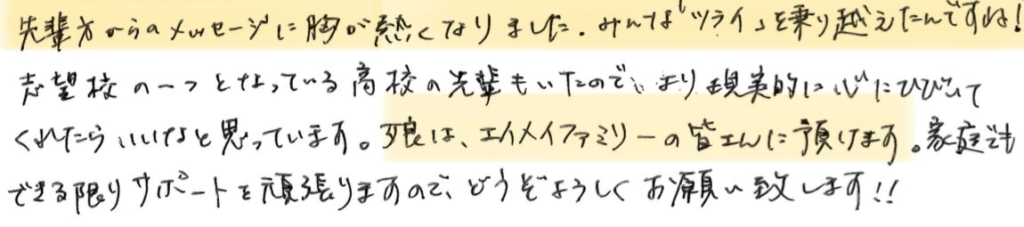 先輩方からのメッセージに胸が熱くなりました。みんな「ツライ」を乗り越えたんですね!
志望校の一つとなっている高校の先輩もいたので、より現実的に心にひびいて
くれたらいいなと思っています。娘は、エイメイファミリーの皆さんに預けます。家庭でも
できる限りサポートを頑張りますので、どうぞよろしくお願い致します!!